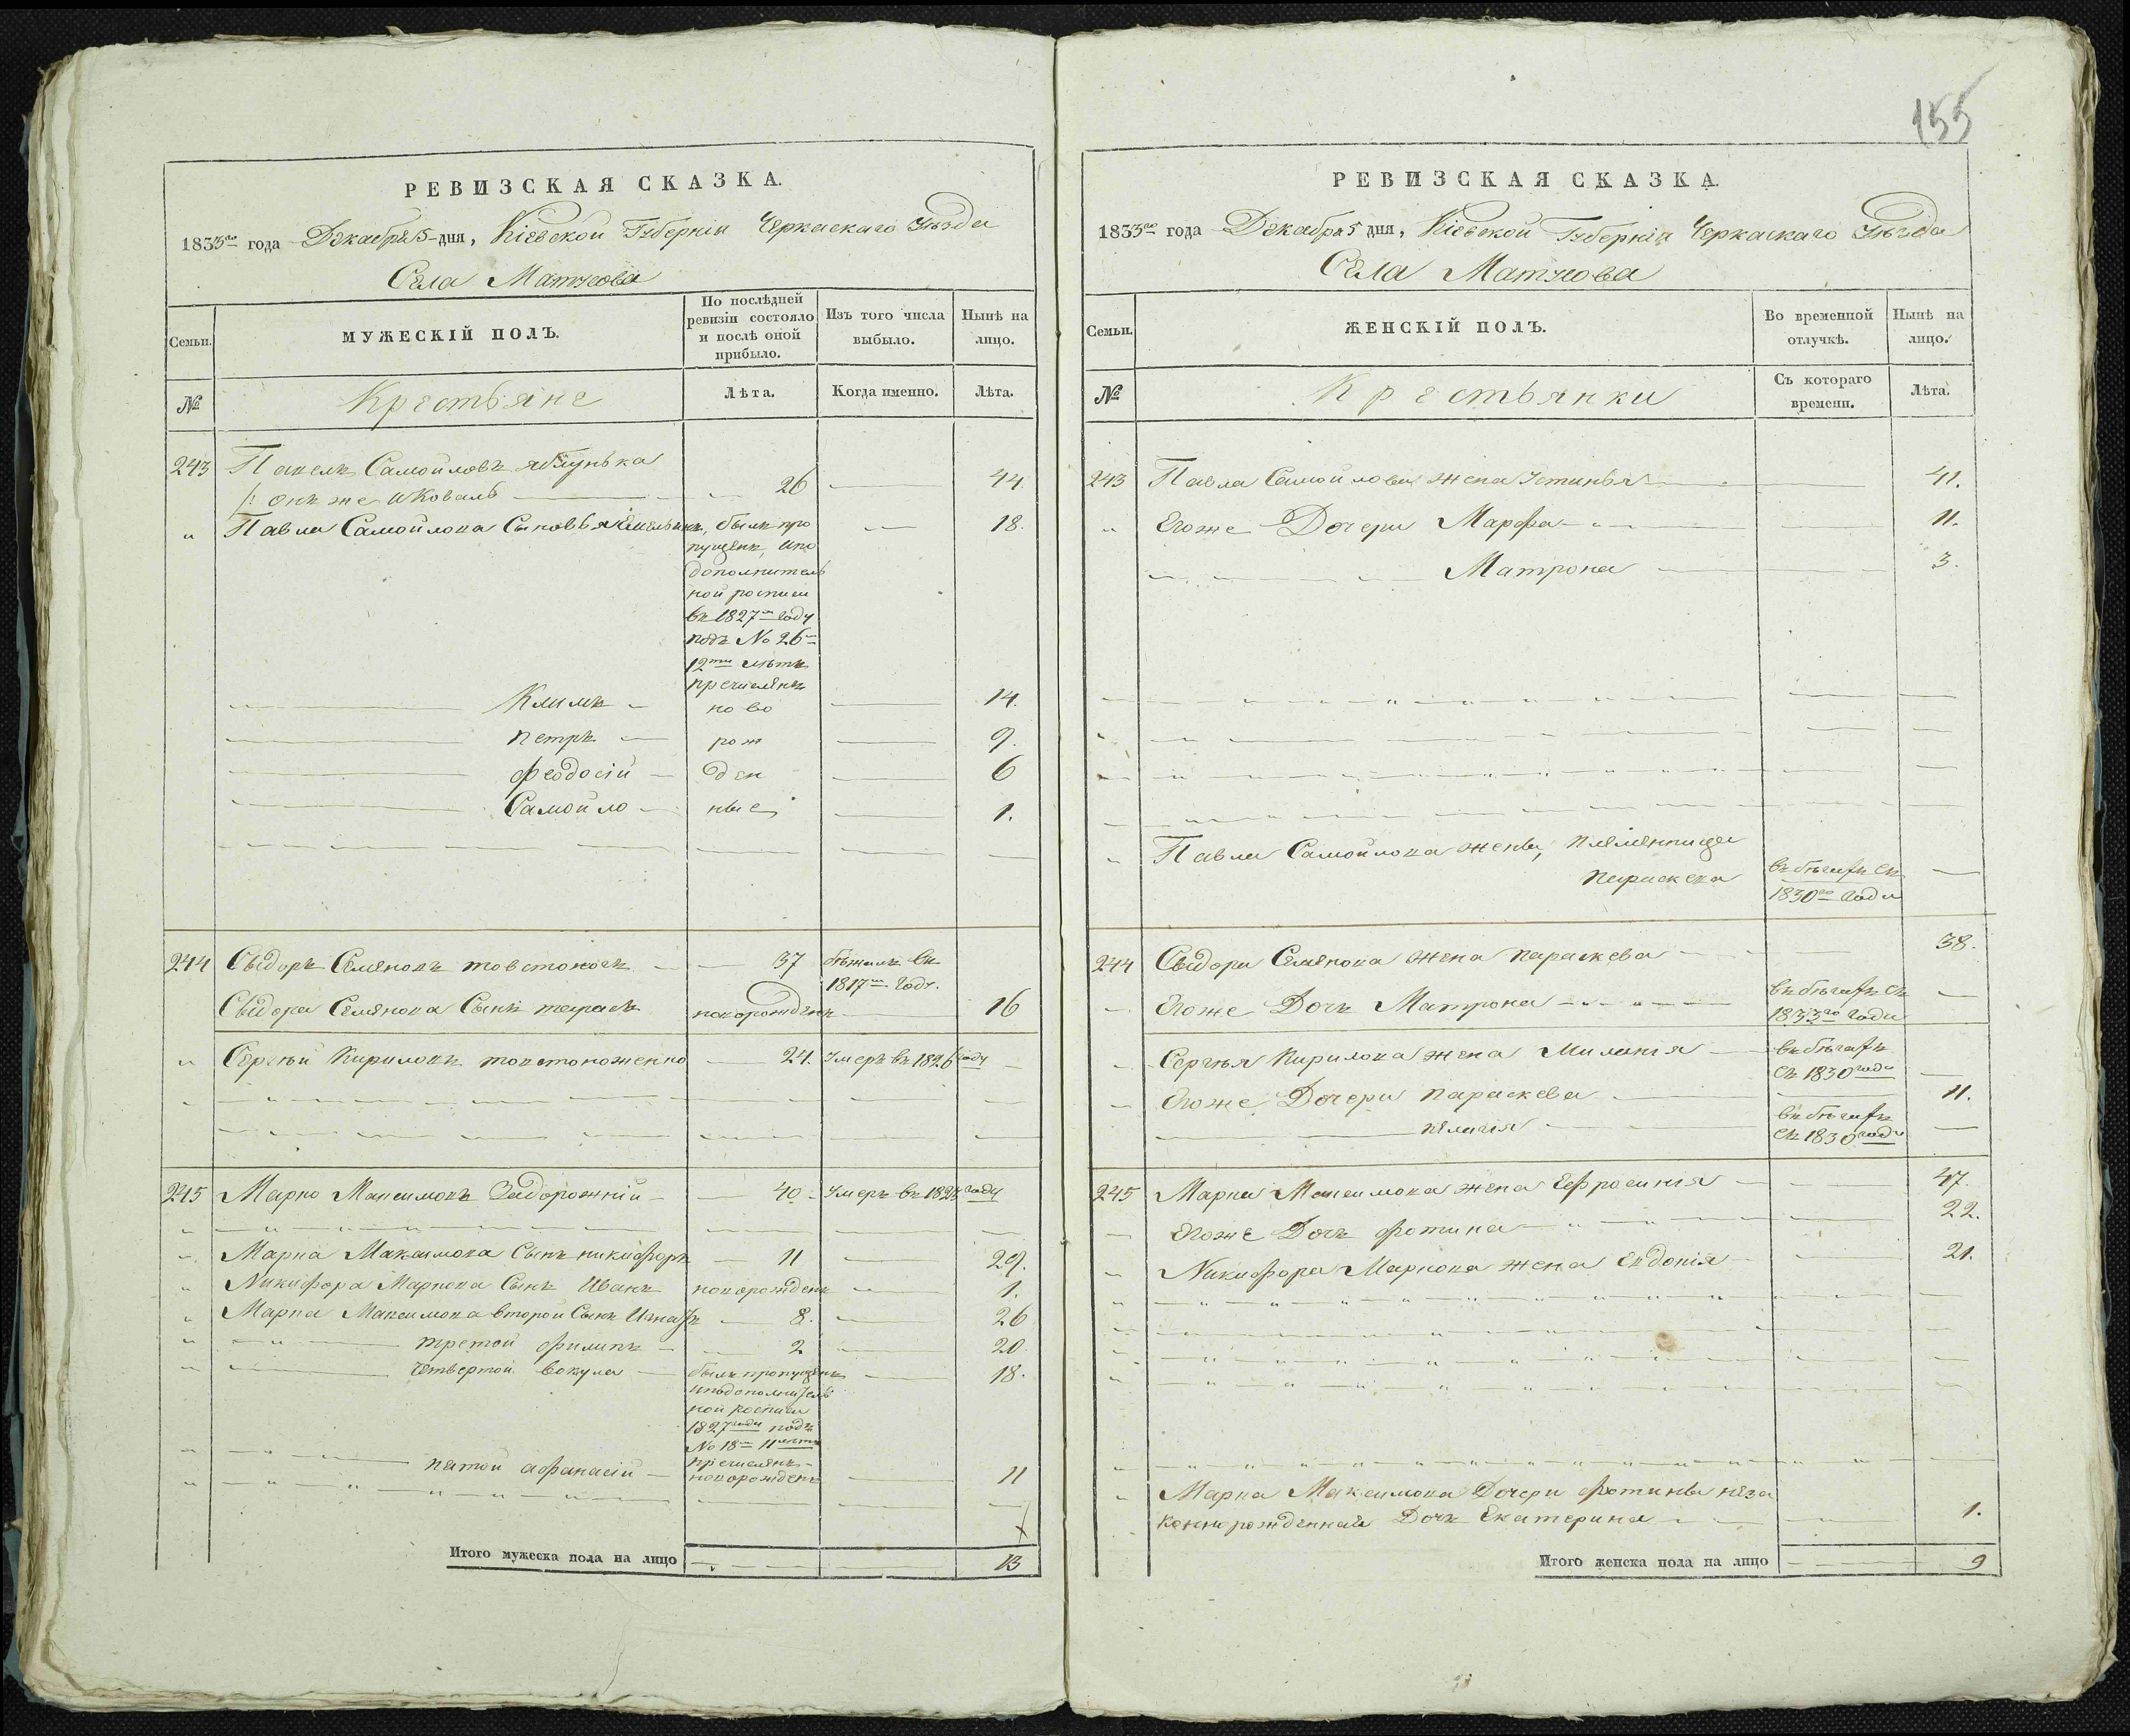 155
РЕВИЗСКАЯ СКАЗКА.
1833го года Декабря 5 дня, Кіевской Губерніи Черкаскаго Уѣзда
Села Матусова
Семьи.
МУЖЕСКІЙ ПОЛЪ.
По послѣдней ревизіи состояло и послѣ оной прибыло.
Изъ того числа выбыло.
Нынѣ на лицо.
№
Крестьяне
Лѣта.
Когда именно.
Лѣта.
243 Павелъ Самойловъ
онъ же и Коваль 26 44
Павла Самойлова Сыновья Емельянъ, былъ про 18.
пущенъ, и по
дополнитель
ной росписи
въ 1827м Году
подъ № 26м
12ти лѣтъ
пречисленъ
Климъ ново 14.
Петръ рож 9.
Феодосій ден 6
Самойло ные 1.
244 Сыдоръ Семеновъ товстоногъ 37 бѣжалъ въ
1817м Году.
Сыдора Семенова Сынъ тарасъ новорожденъ 16
Сергѣй Кириловъ товстоноженко 24. Умеръ въ 1826 году
245 Марко Максимовъ Задорожній 40 Умеръ въ 182 году
Марка Максимова Сынъ никифоръ 11 29.
Никифора Маркова Сынъ Иванъ новорожденъ 1.
Марка Максимова второй Сынъ Игнатъ 8. 26
третой филипъ 2 20.
Четвертой вокула былъ пропущенъ 18.
и по дополнитель
ной росписи
1827 года подъ
№ 18м 11 лѣтъ
пречисленъ
пятой афанасій новорожденъ 11
Итого мужеска пола на лицо 13
РЕВИЗСКАЯ СКАЗКА.
1833го года Декабря 5 дня, Кіевской Губерніи Черкаскаго Уѣзда
Села Матусова
Семьи.
ЖЕНСКІЙ ПОЛЪ.
Во временной отлучкѣ.
Нынѣ на лицо.
№
Крестьянки
Съ котораго времени.
Лѣта.
243 Павла Самойлова жена Устинья 41.
Егоже Дочери Марфа 11.
Матрона 3.
Павла Самойлова жены, племянница
Параскева въ бѣгахъ съ
1830го Года
244 Сыдора Семенова жена параскева 38.
Егоже Дочь Матрона въ бѣгахъ съ
1833го Года
Сергѣя Кирилова жена Миланія въ бѣгахъ
съ 1830 года
Егоже Дочери параскева 11.
пелагія въ бѣгахъ
съ 1830 года
245 Марка Максимова жена Ефросинія 47.
Егоже Дочь фотина 22.
Никифора Маркова жена Евдокія 21.
Марка Максимова Дочери Фотины неза
коннорожденная Дочь Екатерина 1.
Итого женска пола на лицо 9